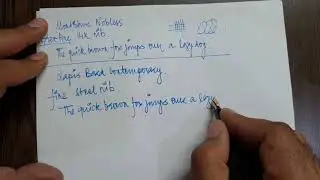 Montblanc Nobless
fine nib
The quick brown fox jumps over a lazy dog
Lapis Bard Contemporary
fine Steel nib
The quick brown fox jumps over a lazy